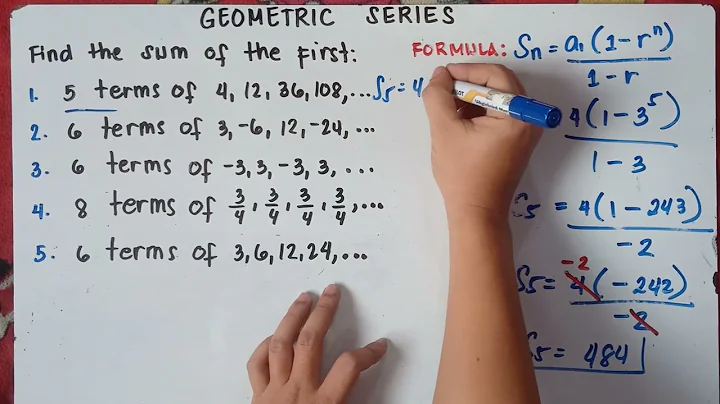 GEOMETRIC SERIES
Find the sum of the first:
FORMULA: Sn = a₁(1-rⁿ) / 1-r
1. 5 terms of 4, 12, 36, 108, ... S₅ = 4
2. 6 terms of 3, -6, 12, -24, ...
3. 6 terms of -3, 3, -3, 3, ...
4. 8 terms of 3/4, 3/4, 3/4, 3/4, ...
5. 6 terms of 3, 6, 12, 24, ...
4(1-3⁵) / 1-3
S₅ = 4(1-243) / -2
-2
S₅ = 4(-242) / -2
S₅ = 484